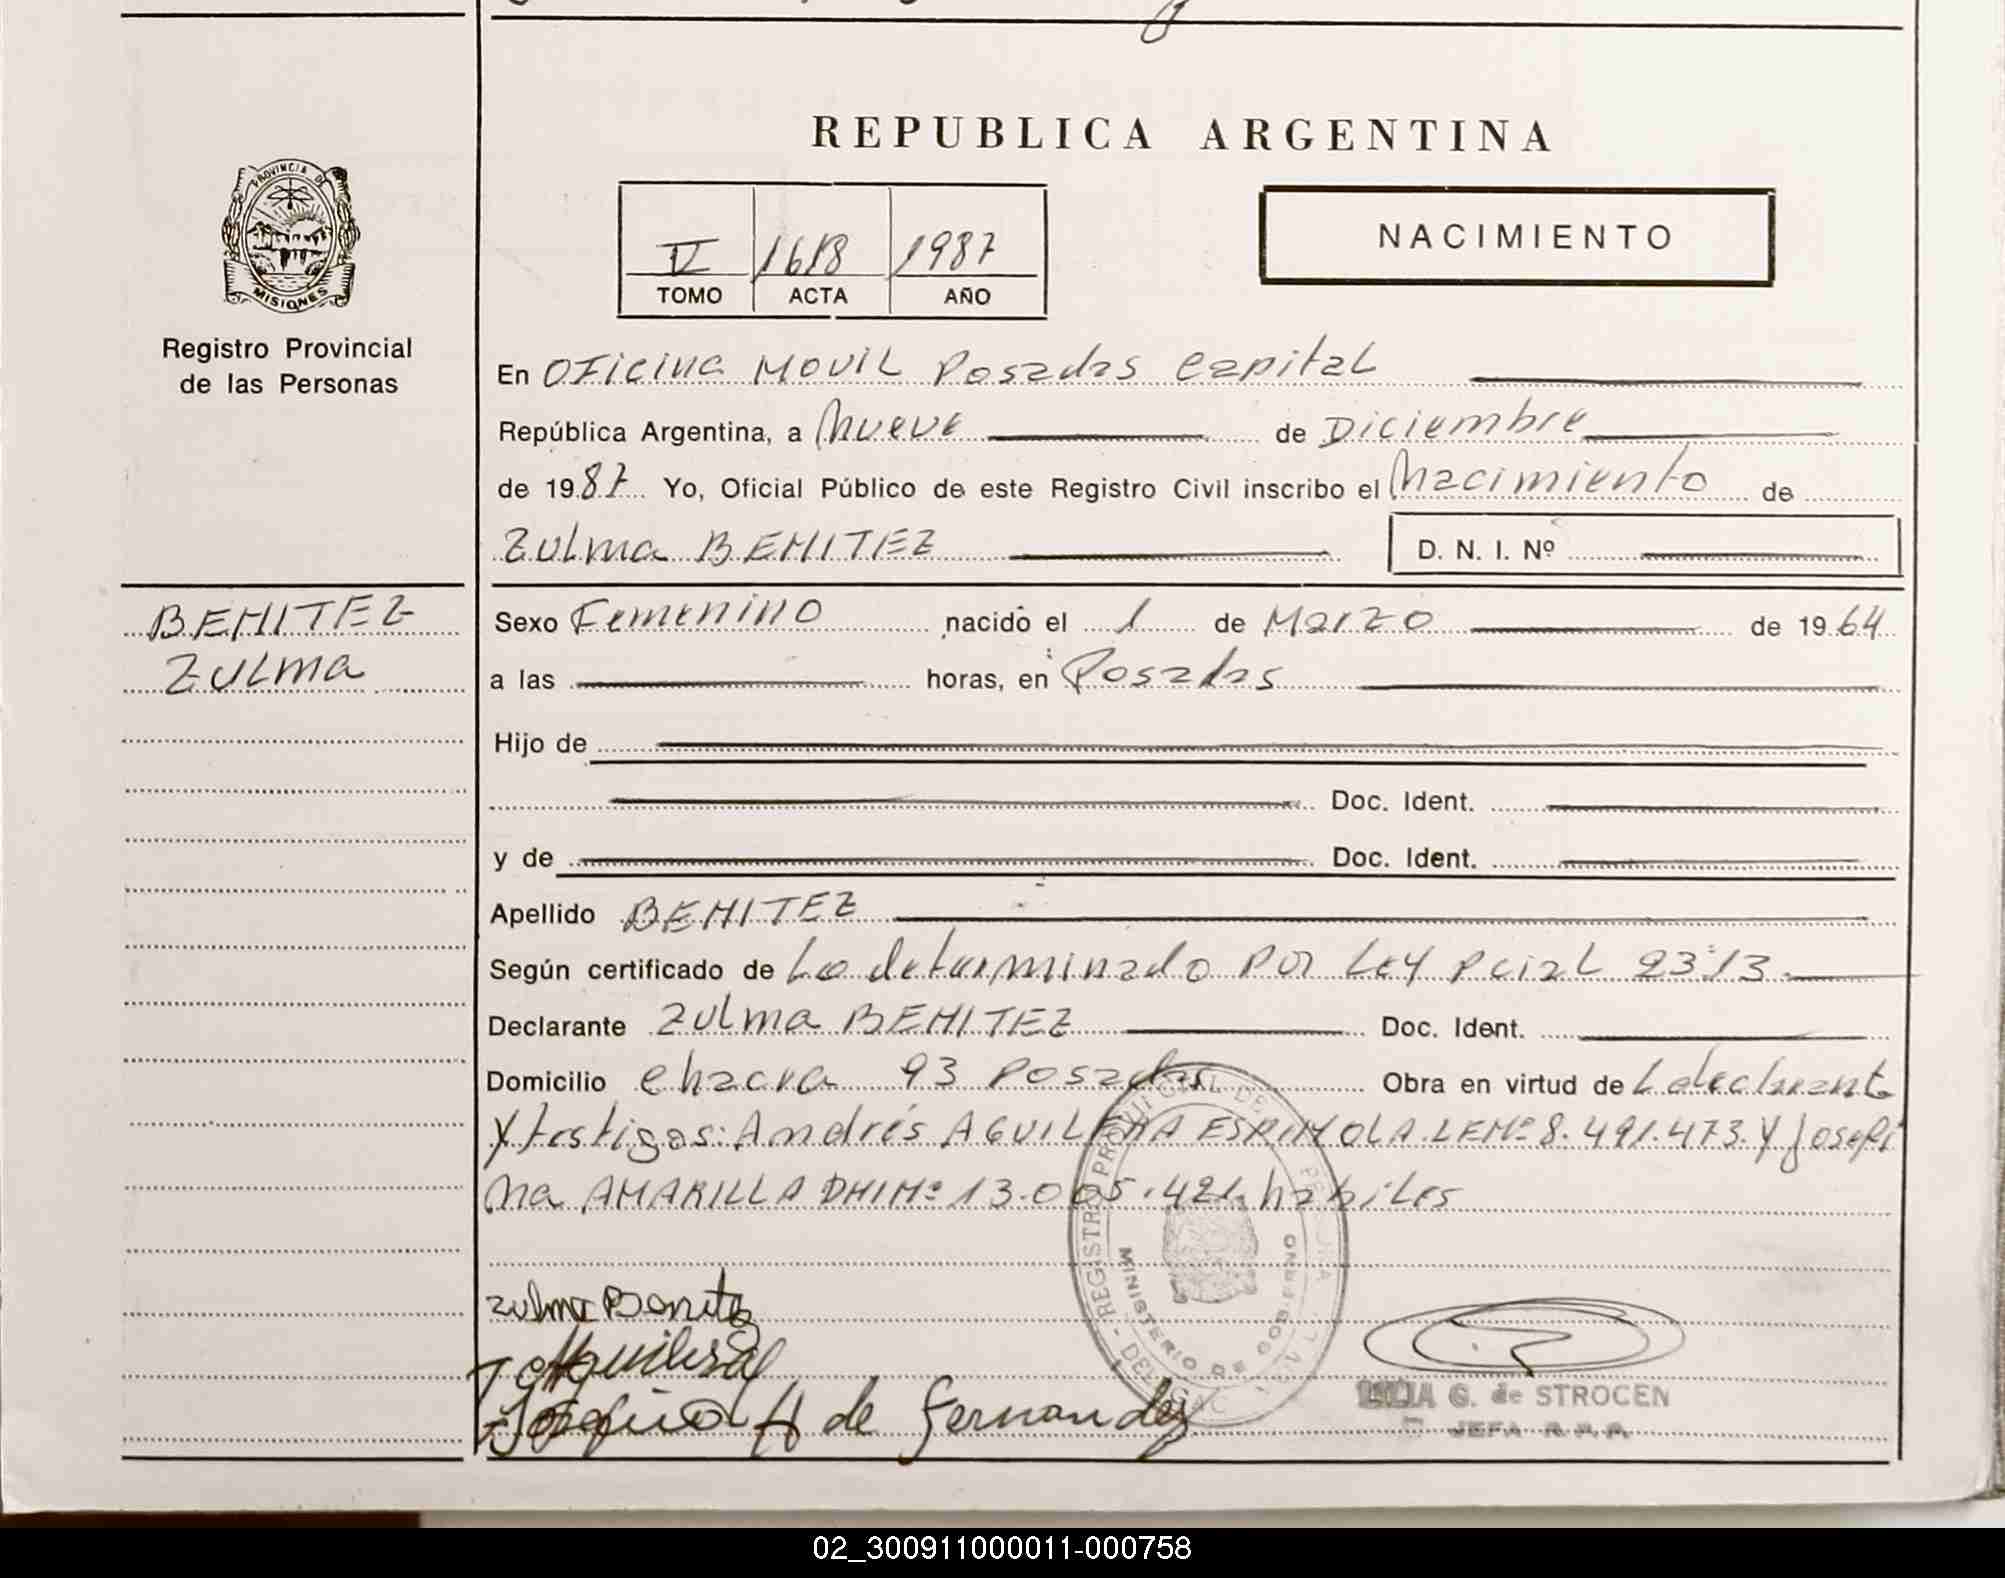 REPUBLICA ARGENTINA
PROVINCIA DE
MISIONES
Registro Provincial
de las Personas
V 1618 1987
TOMO ACTA AÑO
NACIMIENTO
En Oficina Movil Posadas Capital
República Argentina, a Nueve de Diciembre
de 1987 Yo, Oficial Público de este Registro Civil inscribo el Nacimiento de
Zulma BENITEZ D. N. I. Nº
BENITEZ
Zulma
Sexo Femenino nacido el 1 de Marzo de 1964
a las horas, en Posadas
Hijo de
Doc. Ident.
y de Doc. Ident.
Apellido BENITEZ
Según certificado de Lo determinado por Ley Pcial 2313
Declarante Zulma BENITEZ Doc. Ident.
Domicilio Chacra 93 Posadas Obra en virtud de La declarante
y testigos: Andrés AGUILERA ESPINOLA LENº 8.491.473. y Josefi
na AMARILLA DNINº 13.005.421 habiles
REGISTRO PROVINCIAL DE
MINISTERIO DE GOBIERNO
Zulma Benitez
Aguilera
Josefina A de Fernandez
G. de STROCEN
JEFA R.P.P.
02_300911000011-000758